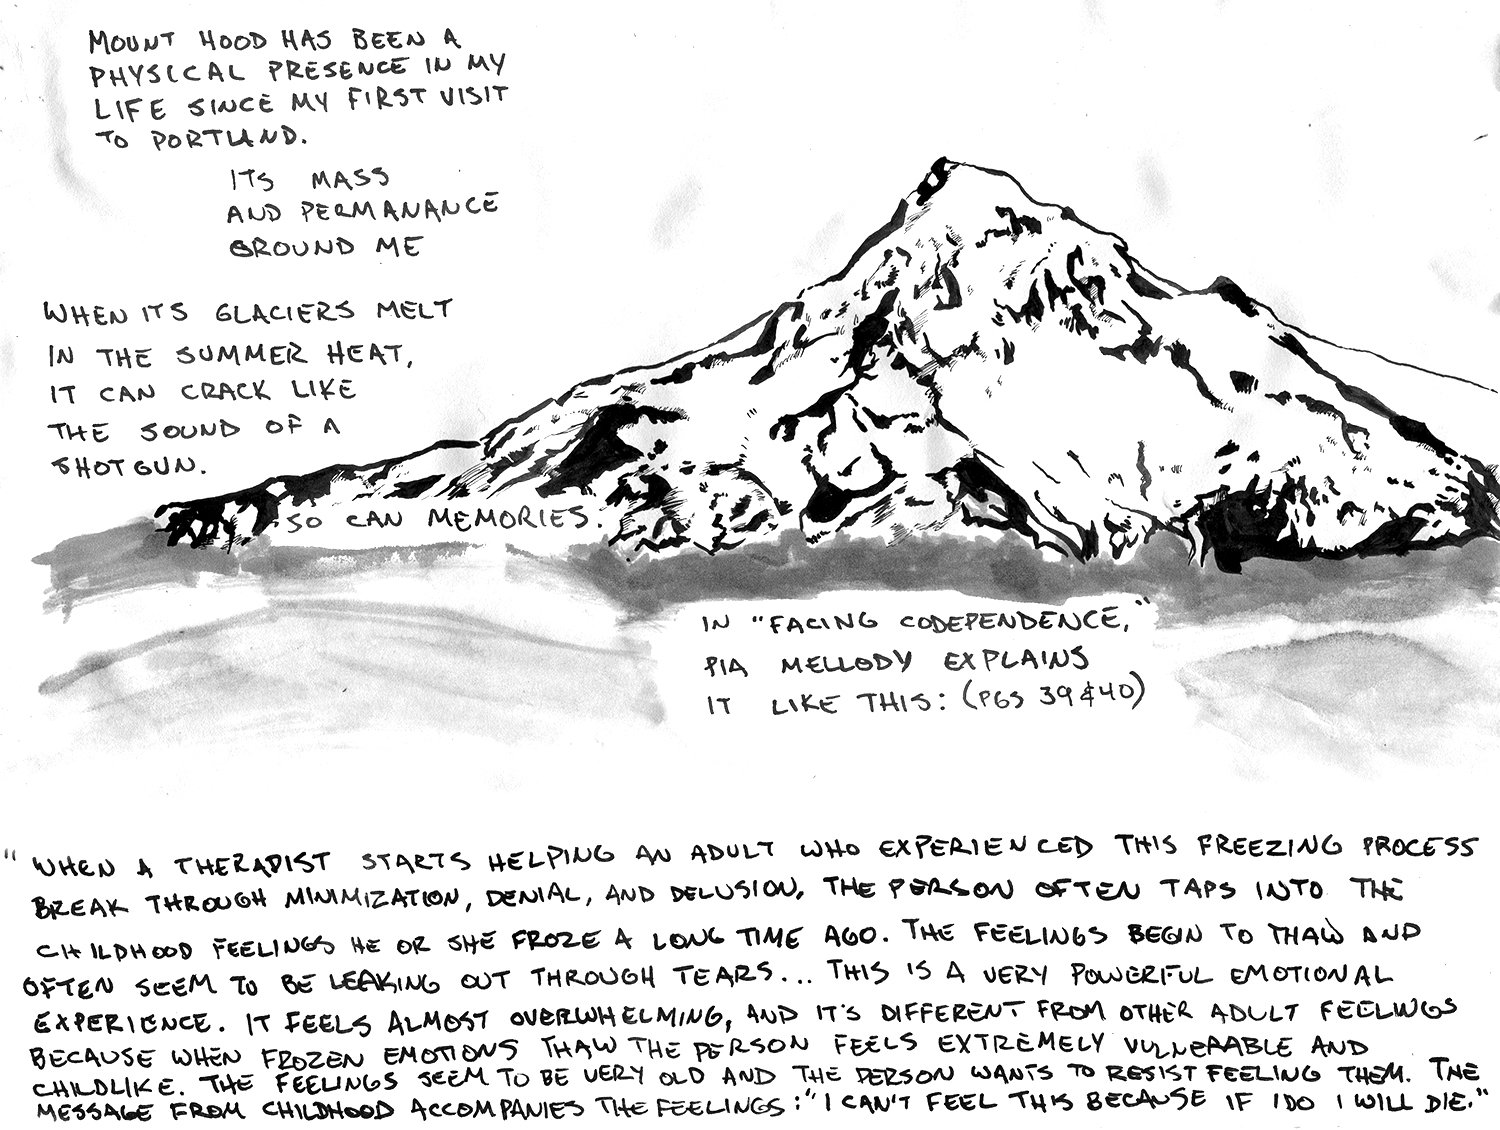 MOUNT HOOD HAS BEEN A
PHYSICAL PRESENCE IN MY
LIFE SINCE MY FIRST VISIT
TO PORTLAND.
ITS MASS
AND PERMANANCE
GROUND ME
WHEN ITS GLACIERS MELT
IN THE SUMMER HEAT,
IT CAN CRACK LIKE
THE SOUND OF A
SHOTGUN.
SO CAN MEMORIES.
IN "FACING CODEPENDENCE,"
PIA MELLODY EXPLAINS
IT LIKE THIS: (PGS 39 & 40)
"WHEN A THERAPIST STARTS HELPING AN ADULT WHO EXPERIENCED THIS FREEZING PROCESS
BREAK THROUGH MINIMIZATION, DENIAL, AND DELUSION, THE PERSON OFTEN TAPS INTO THE
CHILDHOOD FEELINGS HE OR SHE FROZE A LONG TIME AGO. THE FEELINGS BEGIN TO THAW AND
OFTEN SEEM TO BE LEAKING OUT THROUGH TEARS... THIS IS A VERY POWERFUL EMOTIONAL
EXPERIENCE. IT FEELS ALMOST OVERWHELMING, AND IT'S DIFFERENT FROM OTHER ADULT FEELINGS
BECAUSE WHEN FROZEN EMOTIONS THAW THE PERSON FEELS EXTREMELY VULNERABLE AND
CHILDLIKE. THE FEELINGS SEEM TO BE VERY OLD AND THE PERSON WANTS TO RESIST FEELING THEM. THE
MESSAGE FROM CHILDHOOD ACCOMPANIES THE FEELINGS: "I CAN'T FEEL THIS BECAUSE IF I DO I WILL DIE."